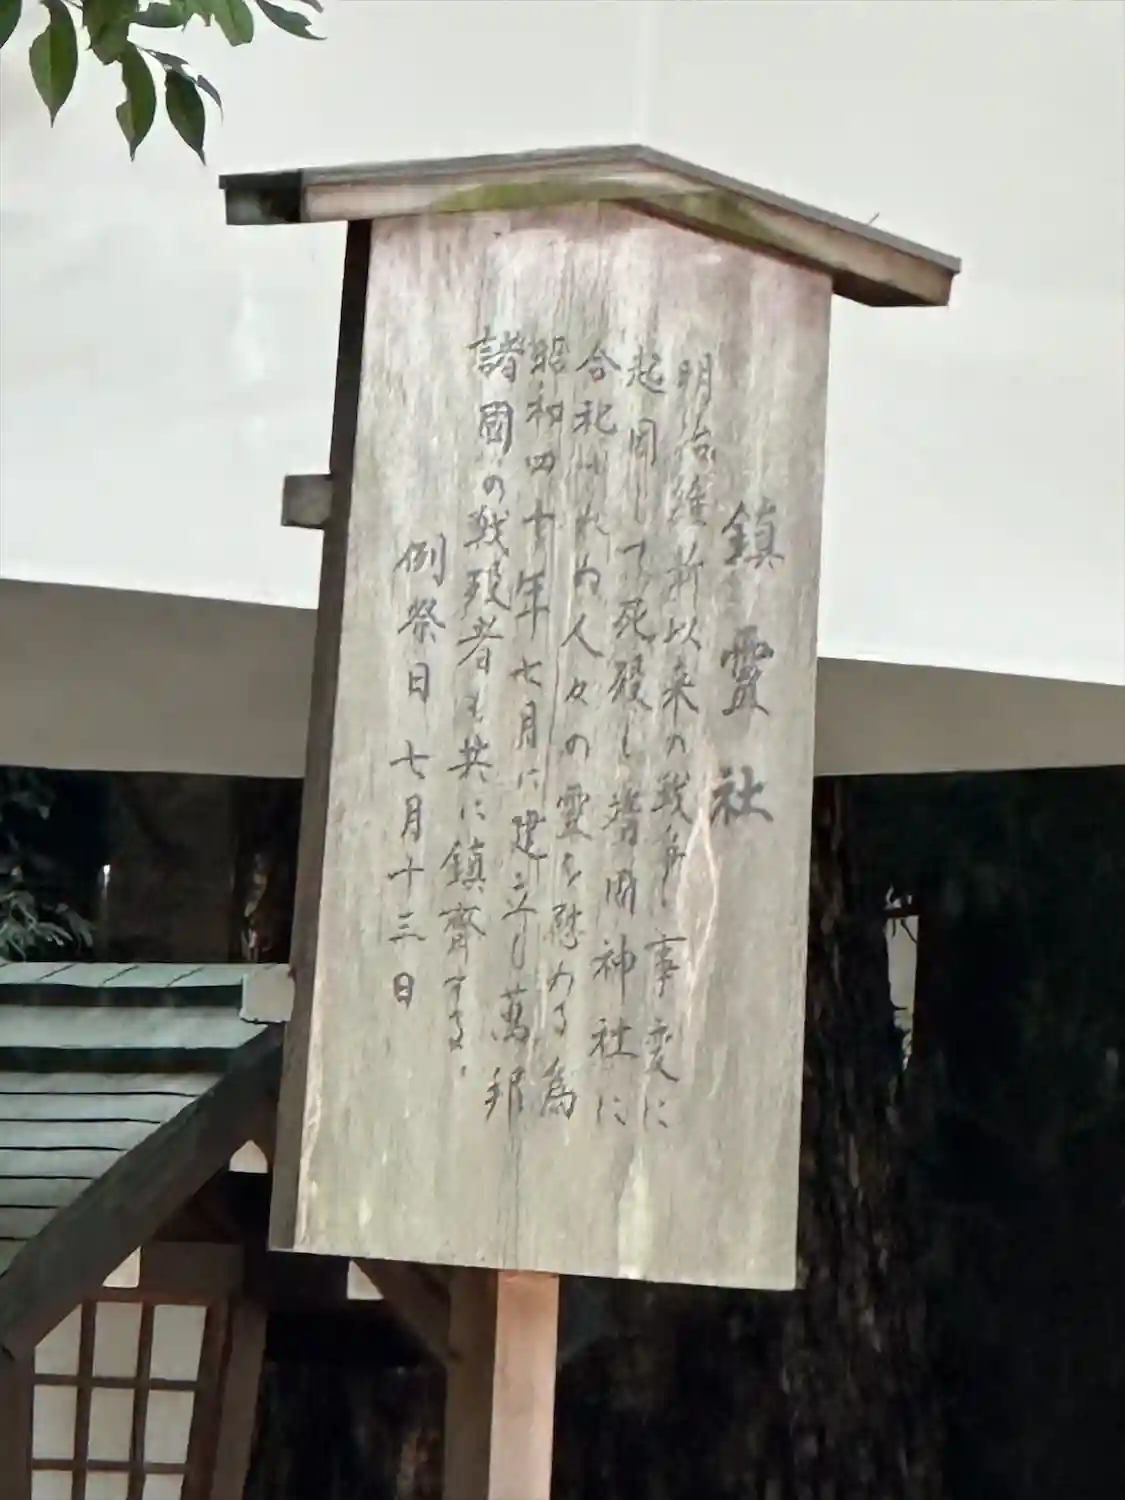 鎮霊社
明治維新以来の戦争・事変に
起因して死歿し、靖国神社に
合祀されぬ人々の霊を慰める為
昭和四十年七月に建立し、萬邦
諸國の戦歿者も共に鎮齋する。
例祭日 七月十三日